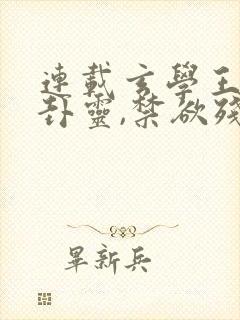 連載玄學王
卦靈,禁欲殘
畢新兵